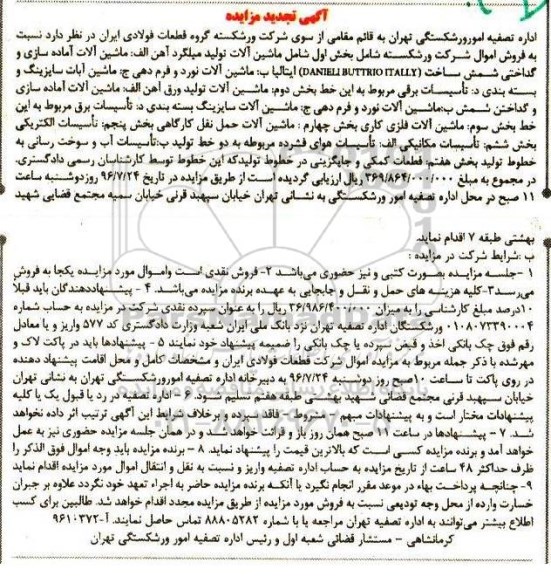 آگهی تجدید مزایده
اداره تصفیه امورورشکستگی تهران به قائم مقامی از سوی شرکت ورشکسته گروه قطعات فولادی ایران در نظر دارد نسبت
به فروش اموال شرکت ورشکسته شامل بخش اول شامل ماشین آلات تولید میلگرد آهن الف: ماشین آلات آماده سازی و
گداختی شمش ساخت (DANIELI BUTTRIO ITALLY) ایتالیا ب: ماشین آلات نورد و فرم دهی ج: ماشین آلات سایزینگ و
بسته بندی د: تأسیسات برقی مربوط به این خط بخش دوم: ماشین آلات تولید ورق آهن الف: ماشین آلات آماده سازی
و گداختن شمش ب:ماشین آلات نورد و فرم دهی ج: ماشین آلات سایزینگ بسته بندی د: تأسیسات برق مربوط به این
خط بخش سوم: ماشین آلات فلزی کاری بخش چهارم : ماشین آلات حمل نقل کارگاهی بخش پنجم: تأسیسات الکتریکی
بخش ششم: تأسیسات مکانیکی الف: تأسیسات هوای فشرده مربوطه به دو خط تولید ب:تأسیسات آب و سوخت رسانی به
خطوط تولید بخش هفتم قطعات کمکی و جایگزینی در خطوط تولیدکه این خطوط توسط کارشناسان رسمی دادگستری.
در مجموع به مبلغ ۳۶۹/۸۶۴/۰۰۰/۰۰۰ ریال ارزیابی گردیده است از طریق مزایده در تاریخ ۹۶/۷/۲۴ روزدوشنبه ساعت
۱۱ صبح در محل اداره تصفیه امور ورشکستگی به نشانی تهران خیابان سپهبد قرنی خیابان سمیه مجتمع قضایی شهید
بهشتی طبقه ۷ اقدام نماید.
ب :شرایط شرکت در مزایده :
۱ -جلسه مزایده بصورت کتبی و نیز حضوری می‌باشد ۲- فروش نقدی است واموال مورد مزایده یکجا به فروش
می‌رسد۳-کلیه هزینه های حمل و نقل و جابجایی به عهده برنده مزایده می‌باشد. ۴ - پیشنهاددهندگان باید قبلا
۱۰درصد مبلغ کارشناسی را به میزان ۳۶/۹۸۶/۴۰۰/۰۰۰ ریال را به عنوان سپرده نقدی شرکت در مزایده به حساب شماره
۰۱۰۸۰۷۳۳۹۰۰۰۴ ورشکستگان اداره تصفیه تهران نزد بانک ملی ایران شعبه وزارت دادگستری کد ۵۷۷ واریز و یا معادل
رقم فوق چک بانکی اخذ و قبض سپرده یا چک بانکی را ضمیمه پیشنهاد خود نمایند ۵ - پیشنهادها باید در پاکت لاک و
مهرشده با ذکر جمله مربوط به مزایده اموال شرکت قطعات فولادی ایران و مشخصات کامل و محل اقامت پیشنهاد دهنده
در روی پاکت تا ساعت ۱۰صبح روز دوشنبه ۹۶/۷/۲۴ به دبیرخانه اداره تصفیه امورورشکستگی تهران به نشانی تهران
خیابان سپهبد قرنی مجتمع قضائی شهید بهشتی طبقه هفتم تسلیم شود.۶ - اداره تصفیه در رد یا قبول یک یا کلیه
پیشنهادات مختار است و به پیشنهادات مبهم / مشروط - فاقد سپرده و برخلاف شرایط این آگهی ترتیب اثر داده نخواهد
شد. ۷ - پیشنهادها در ساعت ۱۱ صبح همان روز باز و قرائت خواهد شد و در همان جلسه مزایده حضوری نیز به عمل
خواهد آمد و برنده مزایده کسی است که بالاترین قیمت را پیشنهاد نماید. ۸ - برنده مزایده باید وجه اموال فوق الذکر را
ظرف حداکثر ۴۸ ساعت از تاریخ مزایده به حساب اداره تصفیه واریز و نسبت به نقل و انتقال اموال مورد مزایده اقدام نماید
۹- چنانچه پرداخت بهاء در موعد مقرر انجام نگیرد یا آنکه برنده مزایده حاضر به اجراء تعهد خود نگردد علاوه بر جبران
خسارت وارده از محل وجه تودیعی نسبت به فروش مورد مزایده از طریق مزایده مجدد اقدام خواهد شد. طالبین برای کسب
اطلاع بیشتر می‌توانند به اداره تصفیه تهران مراجعه یا با شماره ۸۸۸۰۵۲۸۲ تماس حاصل نمایند. آ-۹۶۱۰۳۷۲
کرمانشاهی - مستشار قضائی شعبه اول و رئیس اداره تصفیه امور ورشکستگی تهران